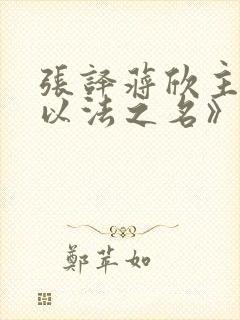 張譯蔣欣主
以法之名》
鄭苹如